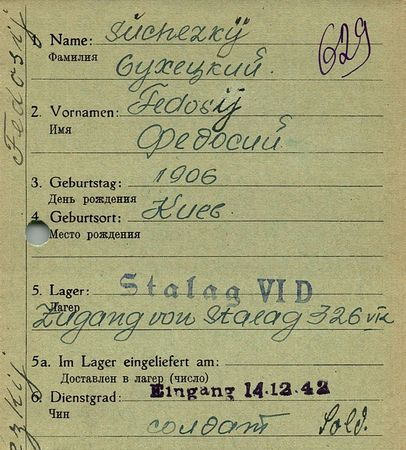 629
Name: Suchezkij
Фамилия
Сухецкий
2. Vornamen: Fedosij
Имя
Федосий
3. Geburtstag: 1906
День рождения
4. Geburtsort: Киев
Место рождения
5. Lager: Stalag VI D
Лагерь
Zugang von Stalag 326 VI K
5a. Im Lager eingeliefert am:
Доставлен в лагерь (число)
6. Dienstgrad: Eingang 14.12.42
Чин
солдат Sold.
Fedosij
ezkij